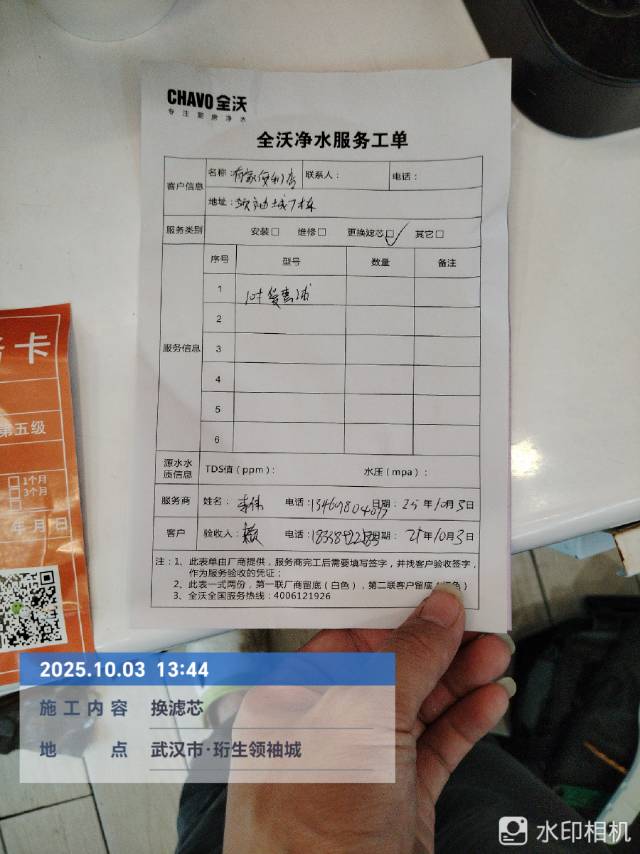 CHAVO 全沃
专注厨房净水
全沃净水服务工单
客户信息
名称: 便利店
联系人:
电话:
地址: 领袖城7栋
服务类别
安装□ 维修□ 更换滤芯☑ 其它□
服务信息
序号 型号 数量 备注
1 10寸
2
3
4
5
6
源水水质信息
TDS值(ppm): 水压(mpa):
服务商 姓名: 李伟 电话: 日期: 25年10月3日
客户 验收人: 电话: 日期: 25年10月3日
注:1、此表单由厂商提供,服务商完工后需要填写签字,并找客户验收签字,
作为服务验收的凭证;
2、此表一式两份,第一联厂商留底(白色),第二联客户留底
3、全沃全国服务热线:4006121926
卡
第五级
□1个月
□3个月
年 月 日
2025.10.03 13:44
施工内容 换滤芯
地点 武汉市·珩生领袖城
水印相机